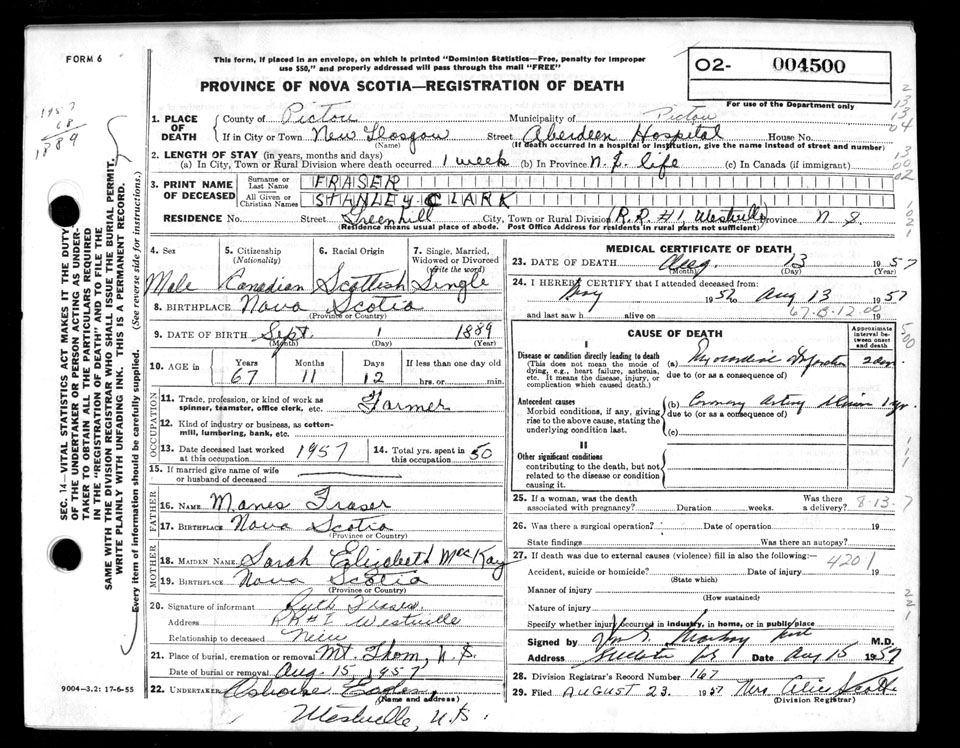 FORM 6
This form, if placed in an envelope, on which is printed "Dominion Statistics—Free, penalty for improper
use $50," and properly addressed will pass through the mail "FREE"
PROVINCE OF NOVA SCOTIA—REGISTRATION OF DEATH
O2- 004500
For use of the Department only
1957
68
1889
1. PLACE OF DEATH
County of Pictou Municipality of Pictou
If in City or Town New Glasgow Street Aberdeen Hospital House No.
(Name) (If death occurred in a hospital or institution, give the name instead of street and number)
2. LENGTH OF STAY (in years, months and days)
(a) In City, Town or Rural Division where death occurred 1 week (b) In Province N.S. life (c) In Canada (if immigrant)
3. PRINT NAME OF DECEASED
Surname or Last Name FRASER
All Given or Christian Names STANLEY CLARK
RESIDENCE No. Street Greenhill City, Town or Rural Division R.R #1, Westville Province N S
(Residence means usual place of abode. Post Office Address for residents in rural parts not sufficient)
4. Sex Male
5. Citizenship (Nationality) Canadian
6. Racial Origin Scottish
7. Single, Married, Widowed or Divorced (Write the word) Single
8. BIRTHPLACE Nova Scotia
(Province or Country)
9. DATE OF BIRTH Sept. 1 1889
(Month) (Day) (Year)
10. AGE in Years 67 Months 11 Days 12 If less than one day old hrs. or min.
OCCUPATION
11. Trade, profession, or kind of work as spinner, teamster, office clerk, etc. Farmer
12. Kind of industry or business, as cotton-mill, lumbering, bank, etc.
13. Date deceased last worked at this occupation 1957 14. Total yrs. spent in this occupation 50
15. If married give name of wife or husband of deceased
FATHER
16. NAME Manes Fraser
17. BIRTHPLACE Nova Scotia
(Province or Country)
MOTHER
18. MAIDEN NAME Sarah Elizabeth MacKay
19. BIRTHPLACE Nova Scotia
(Province or Country)
20. Signature of informant Ruth Fraser
Address RR#1 Westville
Relationship to deceased Niece
21. Place of burial, cremation or removal Mt. Thom, N.S.
Date of burial or removal Aug. 15, 1957
22. UNDERTAKER Osborne Eagles,
(Name and address)
Westville, N.S.
9004—3.2: 17-6-55
SEC. 14—VITAL STATISTICS ACT MAKES IT THE DUTY
OF THE UNDERTAKER OR PERSON ACTING AS UNDER-
TAKER TO OBTAIN ALL THE PARTICULARS REQUIRED
IN THE "REGISTRATION OF DEATH" AND TO FILE THE
SAME WITH THE DIVISION REGISTRAR WHO SHALL ISSUE THE BURIAL PERMIT.
WRITE PLAINLY WITH UNFADING INK. THIS IS A PERMANENT RECORD.
Every item of information should be carefully supplied. (See reverse side for instructions.)
MEDICAL CERTIFICATE OF DEATH
23. DATE OF DEATH Aug. 13 1957
(Month) (Day) (Year)
24. I HEREBY CERTIFY that I attended deceased from:
1952 Aug 13 1957
and last saw h alive on 19
67-B-12.00
CAUSE OF DEATH
Approximate interval between onset and death
I
Disease or condition directly leading to death
(This does not mean the mode of dying, e.g., heart failure, asthenia, etc. It means the disease, injury, or complication which caused death.)
(a) Myocardial Infarction 2 days
due to (or as a consequence of)
Antecedent causes
Morbid conditions, if any, giving rise to the above cause, stating the underlying condition last.
(b) Coronary Artery Disease 1 yr.
due to (or as a consequence of)
(c)
II
Other significant conditions
contributing to the death, but not related to the disease or condition causing it.
25. If a woman, was the death associated with pregnancy? Duration weeks. Was there a delivery?
8-13-7
26. Was there a surgical operation? Date of operation 19
State findings Was there an autopsy?
27. If death was due to external causes (violence) fill in also the following:—
4201
Accident, suicide or homicide? Date of injury 19
(State which)
Manner of injury
(How sustained)
Nature of injury
Specify whether injury occurred in industry, in home, or in public place
Signed by M.D.
Address Date Aug 15 1957
28. Division Registrar's Record Number 167
29. Filed AUGUST 23. 1957 Mrs
(Division Registrar)